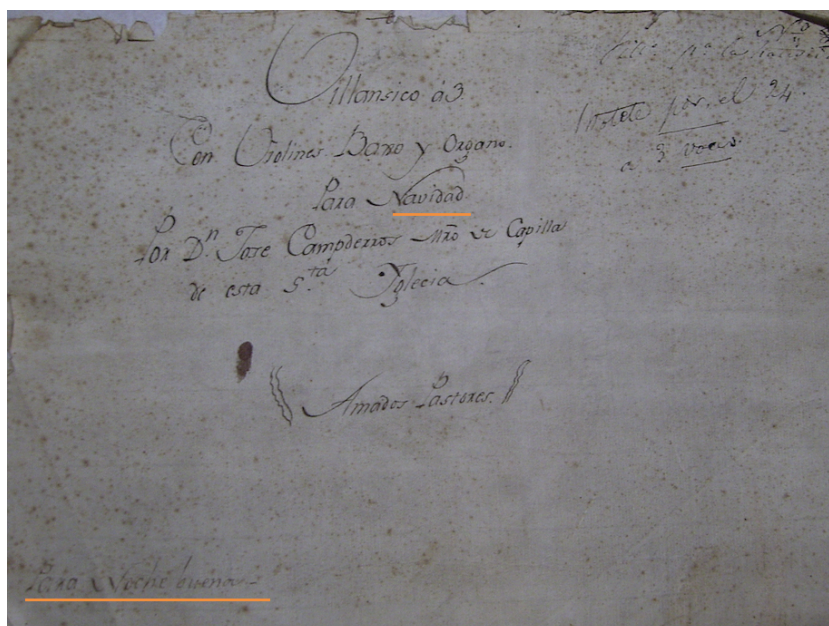 Villansico á3.
Con Violines Baxo y Organo.
Para Navidad
Por Dn. Jose Campderros Mro de Capilla
de esta Sta. Yglecia.
Amados Pastores.
Motete por el 24.
a 3 voces.
Para Noche buena